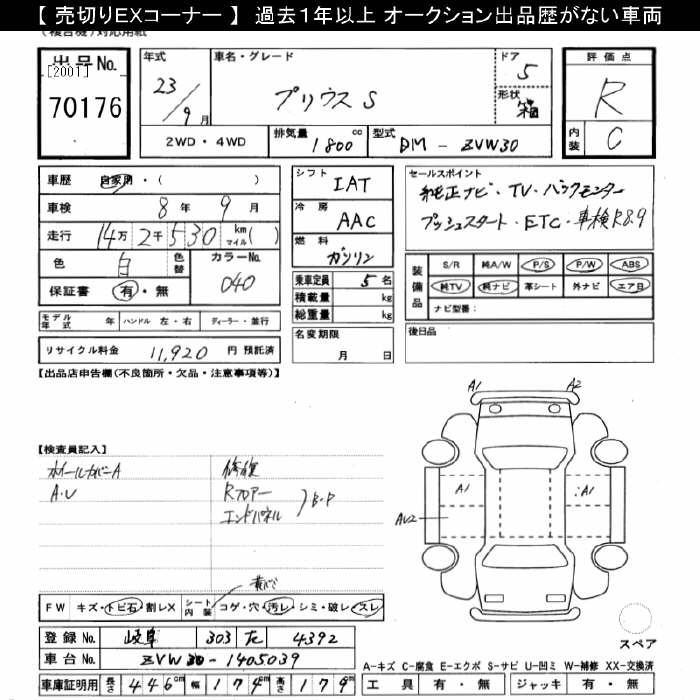 【 売切りEXコーナー 】 過去1年以上 オークション出品歴がない車両
出品No. [2001] 70176
年式 23/9月
車名・グレード プリウス S
ドア 5
形状 箱
評価点 R
内装 C
2WD・4WD
排気量 1800 cc
型式 DM - ZVW30
車歴 自家用・( )
車検 8年 9月
走行 14万2千530 km マイル( )
色 白 色替
カラーNo. 040
保証書 有・無
シフト IAT
冷房 AAC
燃料 ガソリン
乗車定員 5名
積載量 kg
総重量 kg
名変期限 月 日
セールスポイント
純正ナビ・TV・バックモニター
プッシュスタート・ETC・車検R8.9
装備品 S/R 純A/W P/S P/W ABS
純TV 純ナビ 革シート 外ナビ エア日
ナビ型番:
後日品
モデル年式 年 ハンドル 左・右 ディーラー・並行
リサイクル料金 11,920 円 預託済
【出品店申告欄(不良箇所・欠品・注意事項等)】
【検査員記入】
ホイールカバーA
A・U
修復
Rフロアー
エンドパネル
B・P
A1 A2
A1 A1
AU2
FW キズ・トビ石・割レX シート内装 コゲ・穴・汚レ・シミ・破レ・スレ
スペア
登録No. 岐阜 303 た 4392
車台No. ZVW30-1405039
車庫証明用 長さ 446cm 幅 174cm 高さ 149cm
A-キズ C-腐食 E-エクボ S-サビ U-凹ミ W-補修 XX-交換済
工具 有・無 ジャッキ 有・無